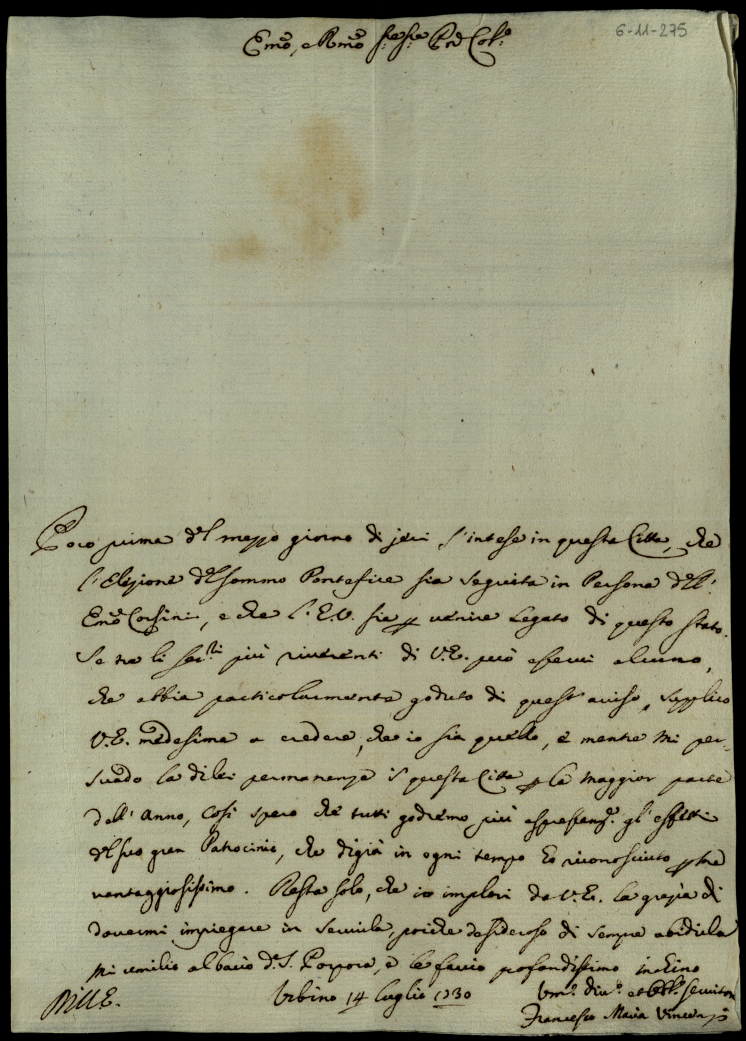 6-11-275
Emo, e Rmo Sig.e Sig.e Prôn Col.o
Poco prima del mezzo giorno di jeri s'intese in questa Città, che
l'Elezione del sommo Pontefice sia seguita in Persona dell'
Emo Corsini, e che l'E.V. sia p venire Legato di questo stato.
Se tra li ser.ri più riverenti di V.E. può esservi alcuno,
che abbia particolarmente goduto di quest'aviso, supplico
V.E. medesima a credere, che io sia quello, e mentre mi per-
suado la di lei permanenza in questa Città p la maggior parte
dell'Anno, così spero che tutti godremo più gl'effetti
del suo gran Patrocinio, che digià in ogni tempo ho riconosciuto p me
vantaggiosissimo. Resta solo, che io implori da V.E. la grazia di
dovermi impiegare in servirla, poiche desideroso di sempre ubidirla
mi umilio al bacio d.S. Porpora, e le faccio profondissimo inchino
Di V.E. Urbino 14 Luglio 1730 Um.o div.o et obb.o servitore
Francesco Maria